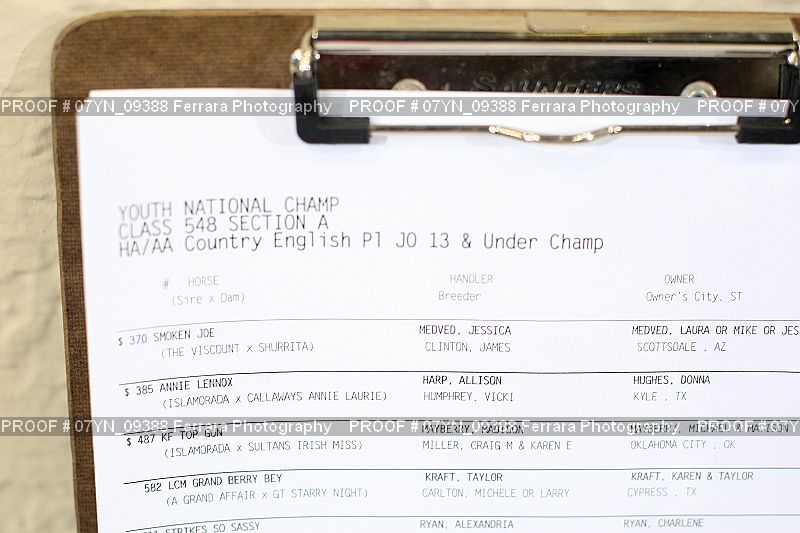 SAUNDERS
PROOF # 07YN_09388 Ferrara Photography PROOF # 07YN_09388 Ferrara Photography PROOF # 07Y
YOUTH NATIONAL CHAMP
CLASS 548 SECTION A
HA/AA Country English Pl JO 13 & Under Champ
# HORSE HANDLER OWNER
(Sire x Dam) Breeder Owner's City, ST
$ 370 SMOKEN JOE MEDVED, JESSICA MEDVED, LAURA OR MIKE OR JES
(THE VISCOUNT x SHURRITA) CLINTON, JAMES SCOTTSDALE , AZ
$ 385 ANNIE LENNOX HARP, ALLISON HUGHES, DONNA
(ISLAMORADA x CALLAWAYS ANNIE LAURIE) HUMPHREY, VICKI KYLE , TX
PROOF # 07YN_09388 Ferrara Photography PROOF # 07YN_09388 Ferrara Photography PROOF # 07Y
$ 487 KF TOP GUN MAYBERRY, MADISON MAYBERRY,
(ISLAMORADA x SULTANS IRISH MISS) MILLER, CRAIG M & KAREN E OKLAHOMA CITY , OK
582 LCM GRAND BERRY BEY KRAFT, TAYLOR KRAFT, KAREN & TAYLOR
(A GRAND AFFAIR x GT STARRY NIGHT) CARLTON, MICHELE OR LARRY CYPRESS , TX
STRIKES SO SASSY RYAN, ALEXANDRIA RYAN, CHARLENE